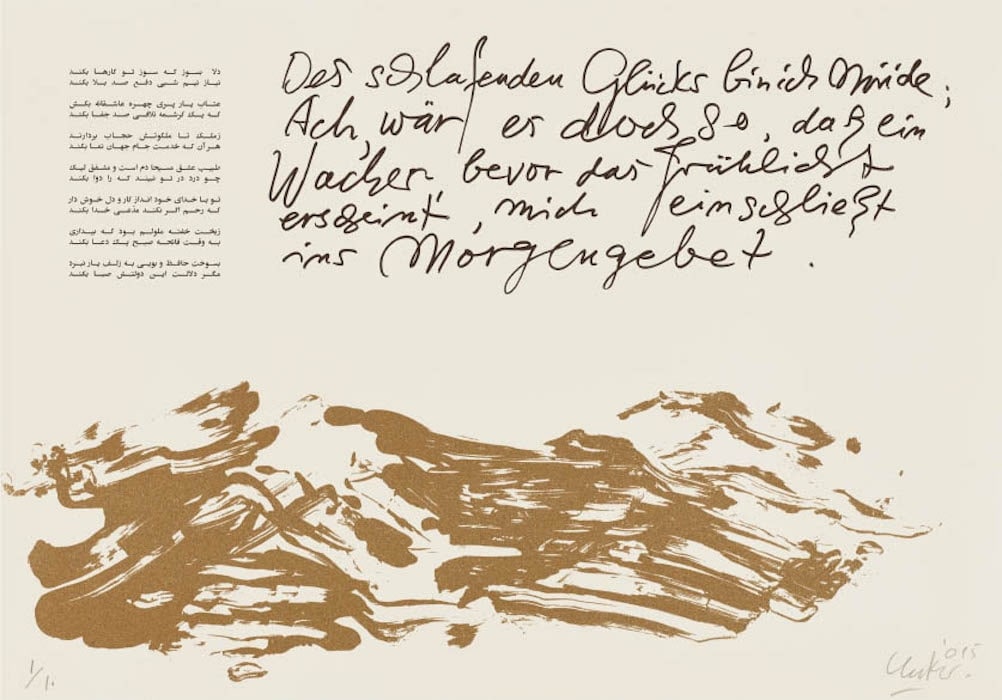 دلا بسوز که سوز تو کارها بکند
نیاز نیم شبی دفع صد بلا بکند
عتاب یار پری چهره عاشقانه بکش
که یک کرشمه تلافی صد جفا بکند
زملک تا ملکوتش حجاب بردارند
هر آن که خدمت جام جهان نما بکند
طبیب عشق مسیحا دم است و مشفق لیک
چو درد در تو نبیند که را دوا بکند
تو با خدای خود انداز کار و دل خوش دار
که رحم اگر نکند مدعی خدا بکند
زبخت خفته ملولم بود که بیداری
به وقت فاتحه صبح یک دعا بکند
بسوخت حافظ و بویی به زلف یار نبرد
مگر دلالت این دولتش صبا بکند
Des schlafenden Glücks bin ich Müde;
Ach, wär' es doch so, daß ein
Wacher, bevor das Frühlicht
erscheint, mich einschließt
ins Morgengebet.
'015